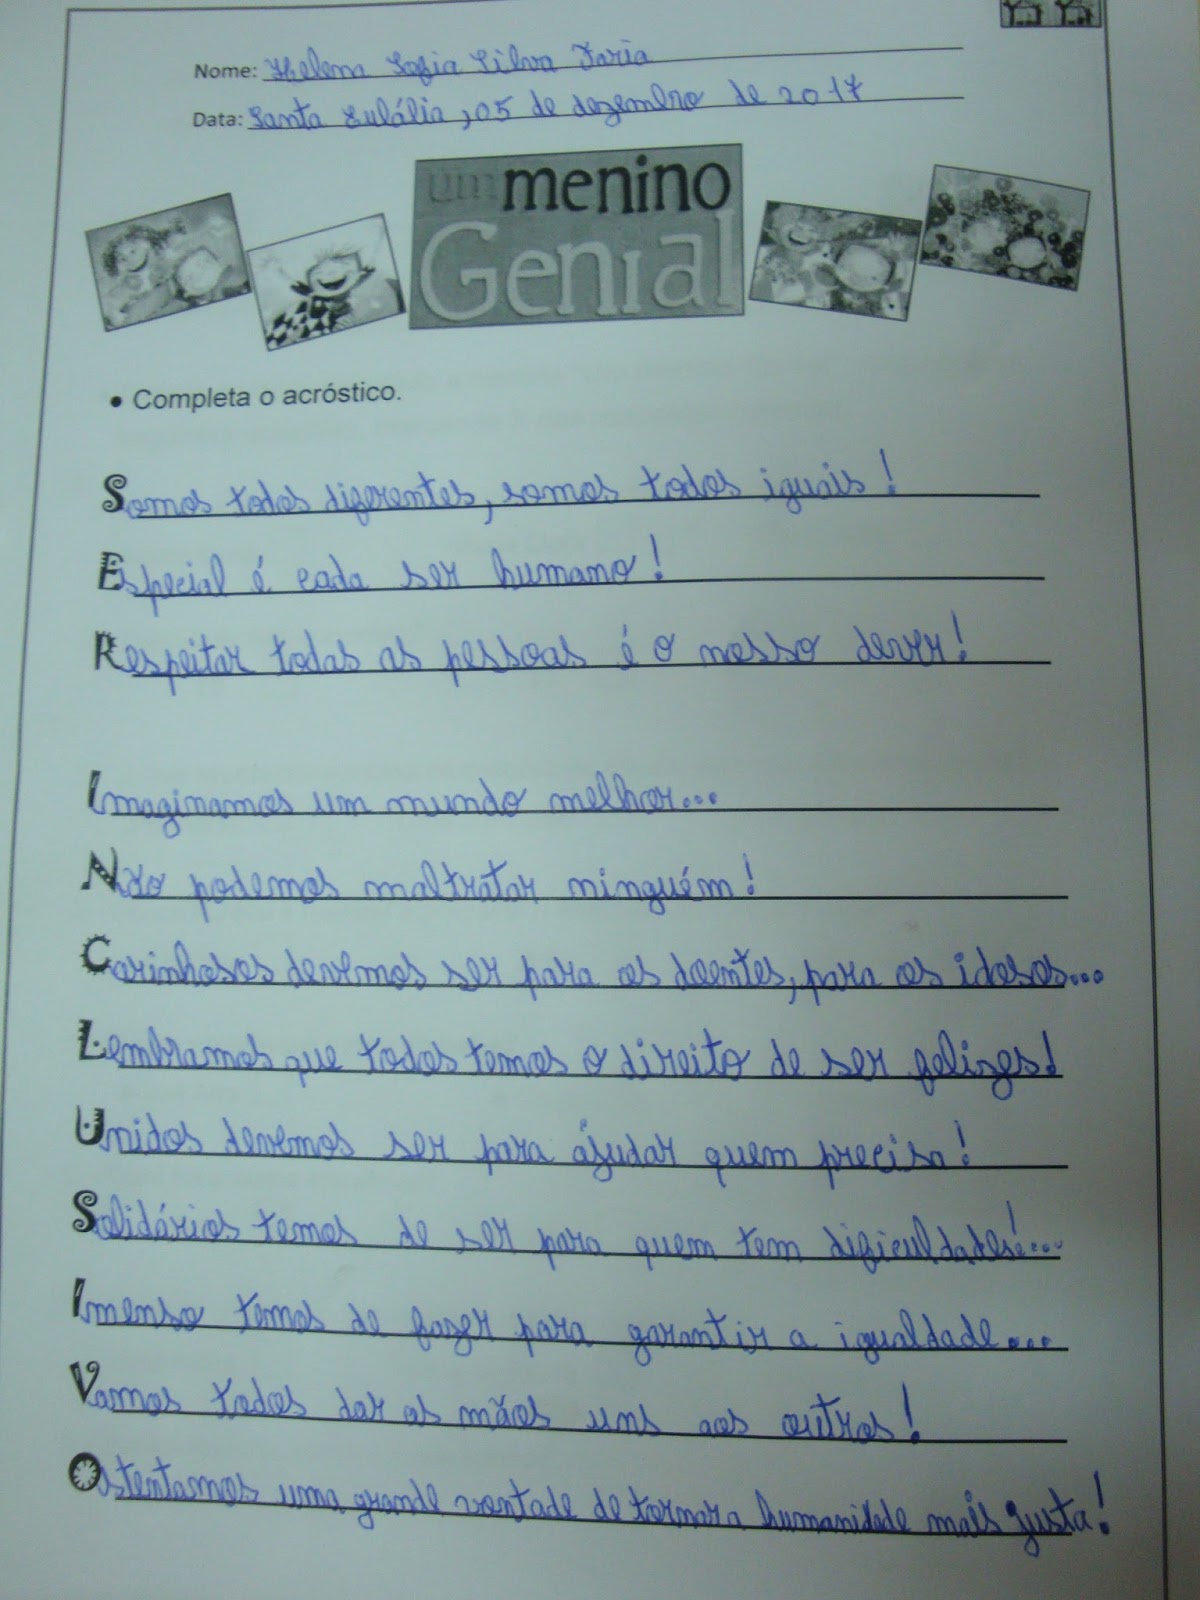 Nome: Helena Sofia Silva Faria
Data: Santa Eulália, 05 de dezembro de 2017
um menino
Genial
• Completa o acróstico.
Somos todos diferentes, somos todos iguais!
Especial é cada ser humano!
Respeitar todas as pessoas é o nosso dever!
Imaginamos um mundo melhor...
Não podemos maltratar ninguém!
Carinhosos devemos ser para os doentes, para os idosos...
Lembramos que todos temos o direito de ser felizes!
Unidos devemos ser para ajudar quem precisa!
Solidários temos de ser para quem tem dificuldades!...
Imenso temos de fazer para garantir a igualdade...
Vamos todos dar as mãos uns aos outros!
Ostentamos uma grande vontade de tornar a humanidade mais justa!